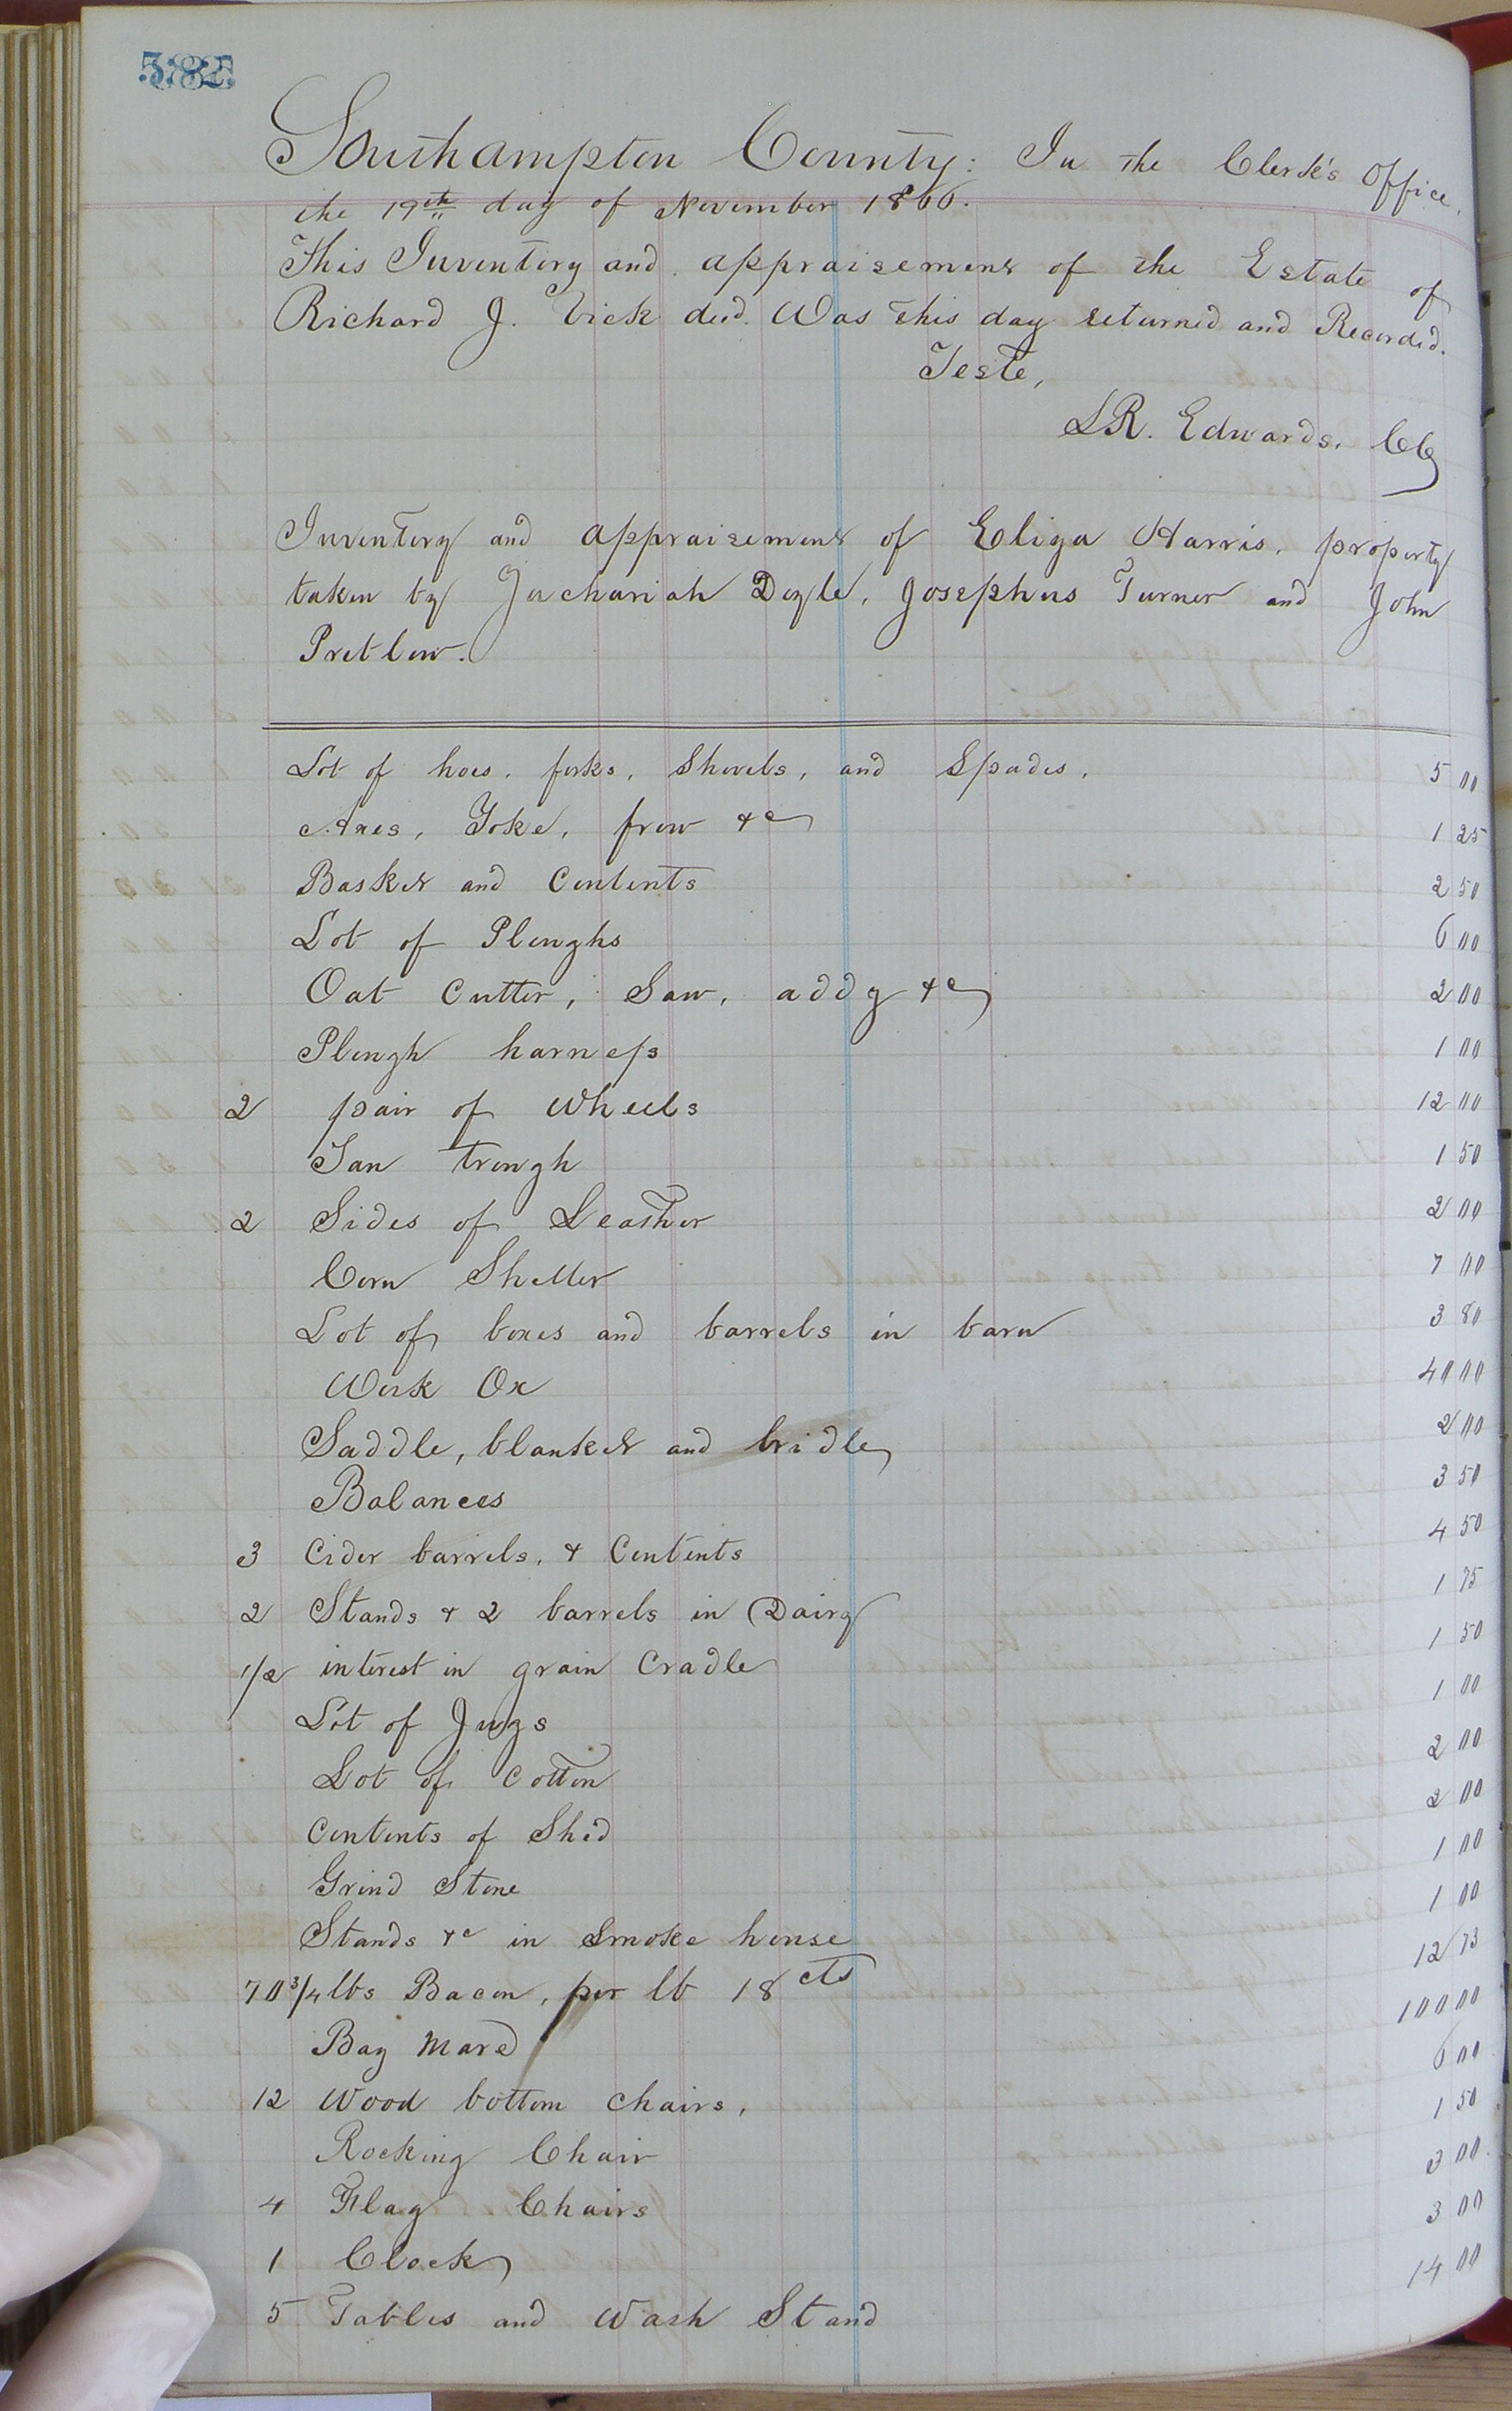 582
Southampton County: In the Clerk's Office,
the 19th day of November 1866.
This Inventory and appraisement of the Estate of
Richard J. Vick decd. Was this day returned and Recorded.
Teste,
L R. Edwards. CC
Inventory and appraisement of Eliza Harris, property
taken by Zachariah Doyle, Josephus Turner and John
Pretlow.
Lot of hoes, forks, Shovels, and Spades, 5 00
Axes, Yoke, frow &c 1 25
Basket and Contents 2 50
Lot of Ploughs 6 00
Oat Cutter, Saw, addz &c 2 00
Plough harness 1 00
2 pair of Wheels 12 00
Tan trough 1 50
2 Sides of Leather 2 00
Corn Sheller 7 00
Lot of boxes and barrels in barn 3 80
Work Ox 40 00
Saddle, blanket and bridle 2 00
Balances 3 50
3 Cider barrels, & Contents 4 50
2 Stands & 2 barrels in Dairy 1 75
1/2 interest in grain Cradle 1 50
Lot of Jugs 1 00
Lot of Cotton 2 00
Contents of Shed 2 00
Grind Stone 1 00
Stands &c in Smoke house 1 00
70 3/4 lbs Bacon, per lb 18 cts 12 73
Bay Mare 100 00
12 Wood bottom Chairs, 6 00
Rocking Chair 1 50
4 Flag Chairs 3 00
1 Clock 3 00
5 Tables and Wash Stand 14 00